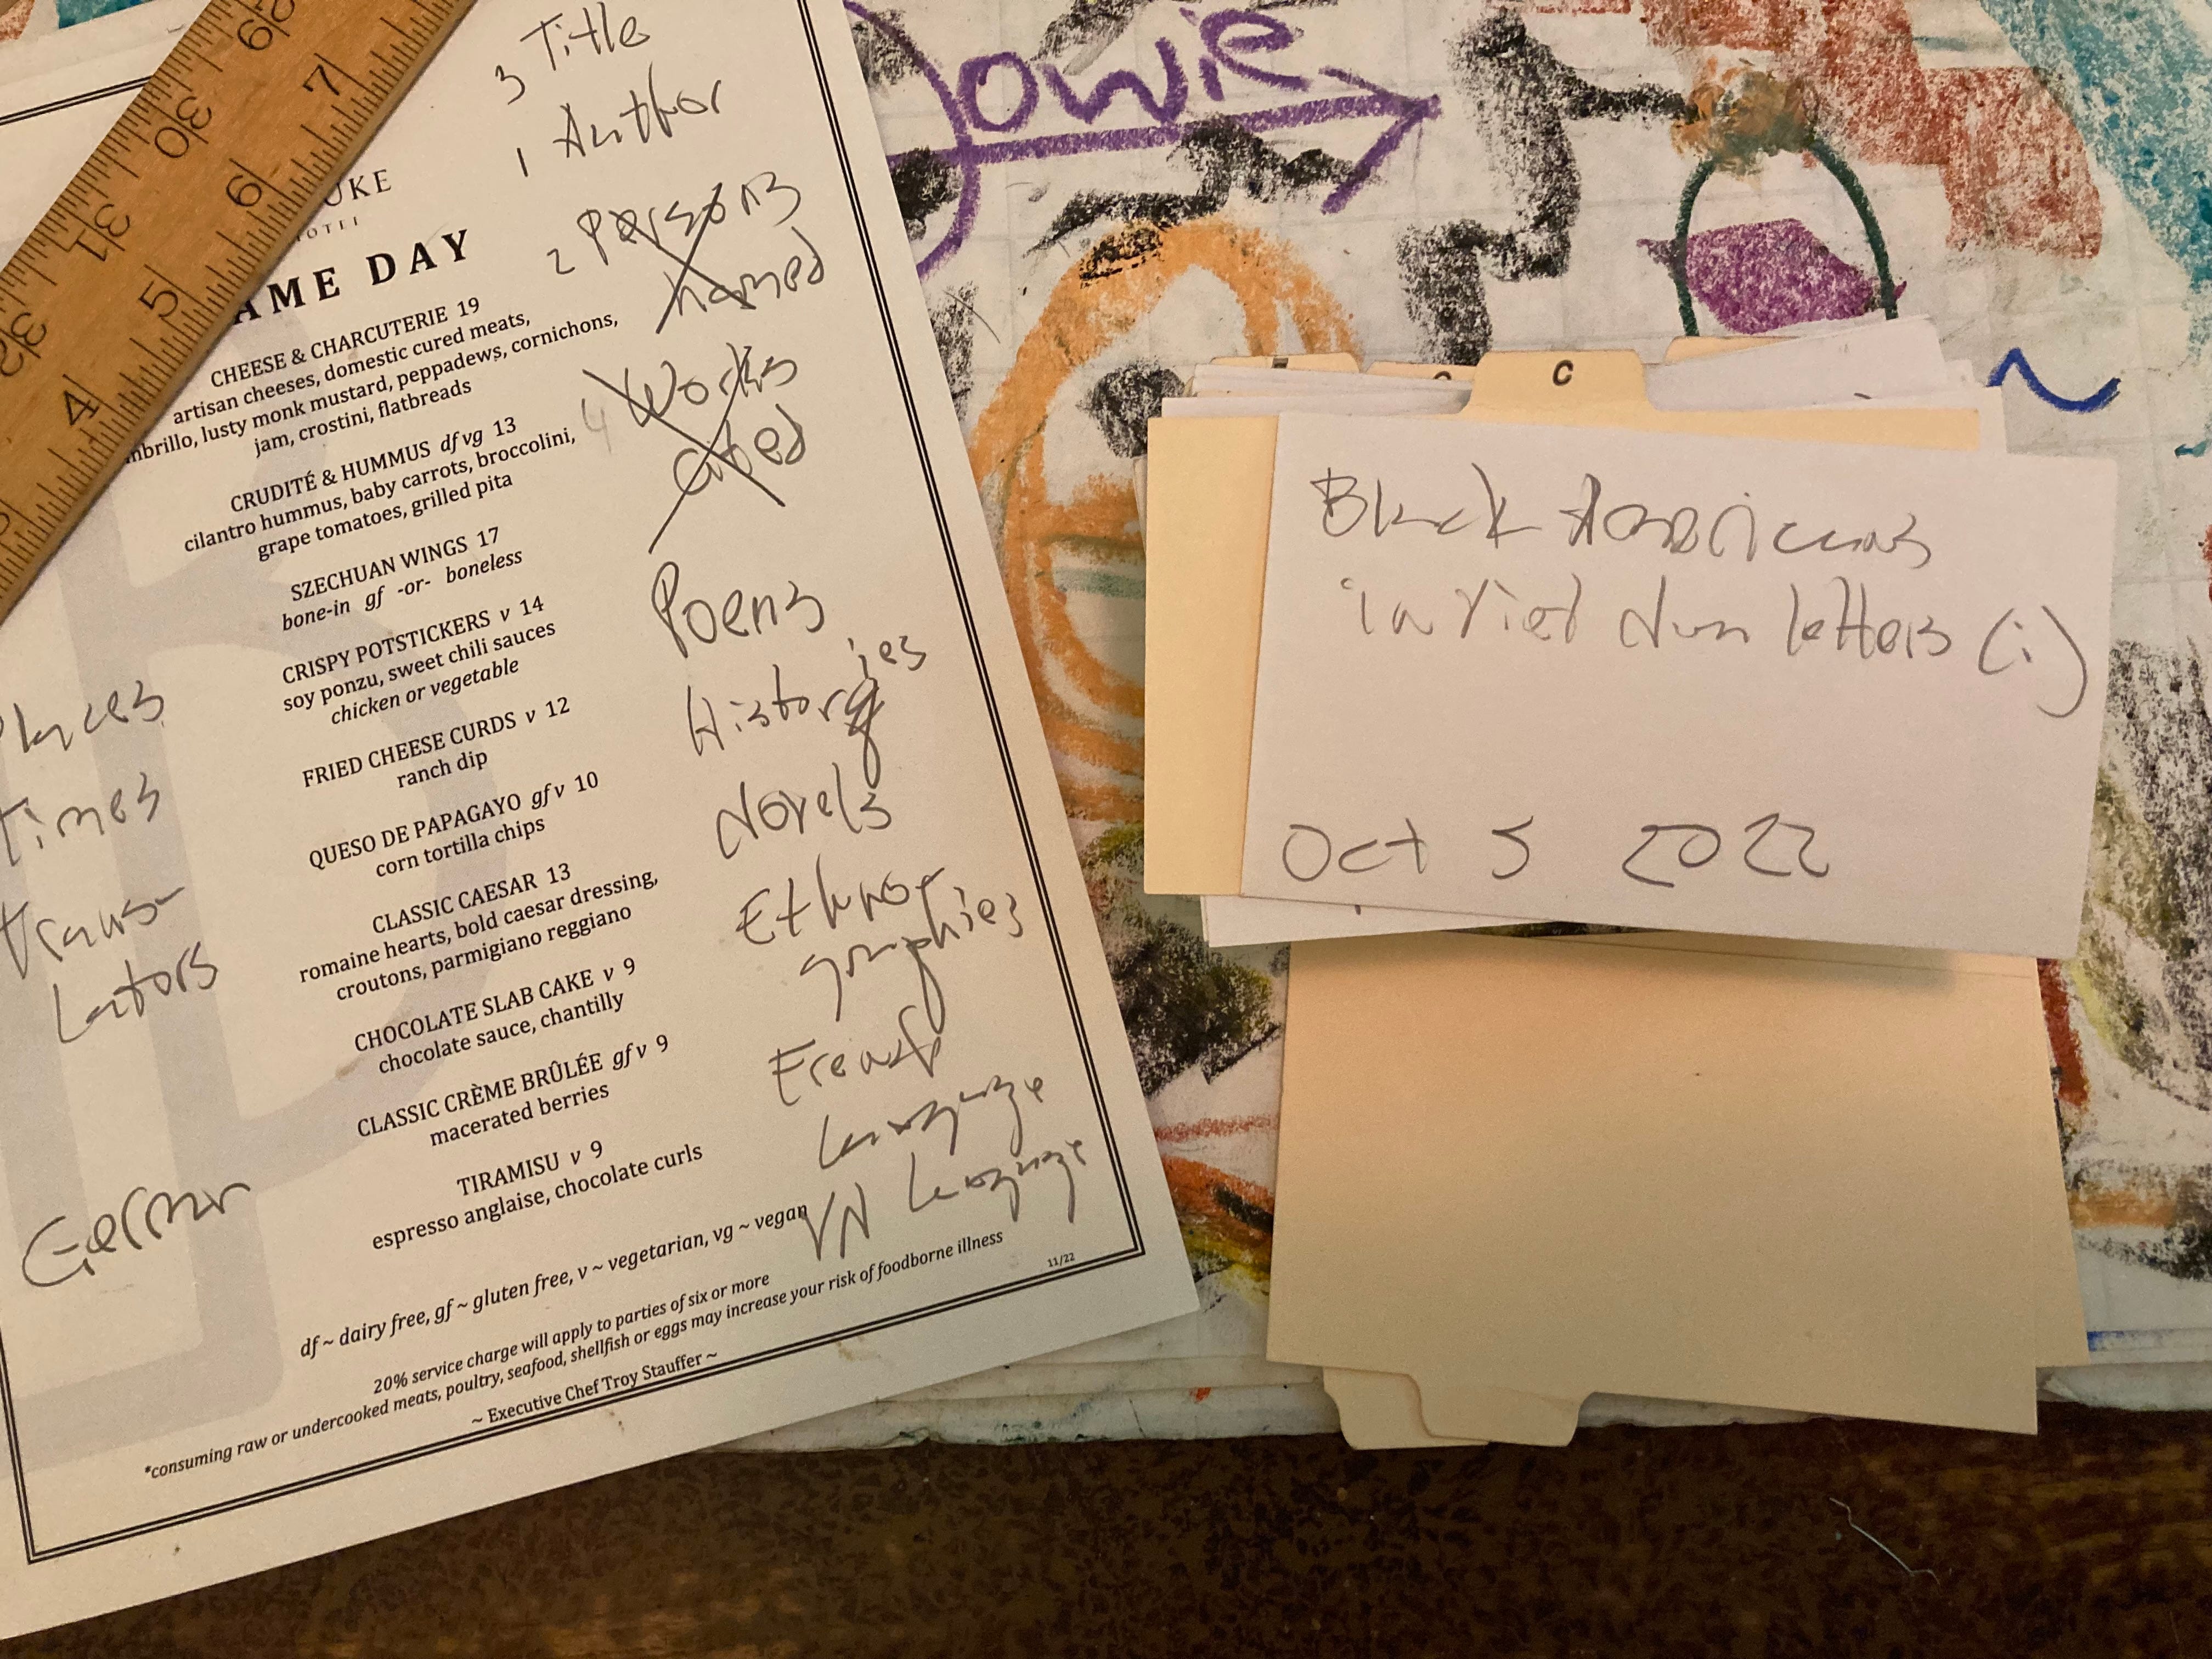 3 Title
1 Author
2 Persons
named
4 Works
cited
Poems
Histories
Novels
Ethno-
graphies
French
Language
VN Language
Places
Times
Trans-
lators
German
UKE
HOTEL
AME DAY
CHEESE & CHARCUTERIE 19
artisan cheeses, domestic cured meats,
mbrillo, lusty monk mustard, peppadews, cornichons,
jam, crostini, flatbreads
CRUDITÉ & HUMMUS df vg 13
cilantro hummus, baby carrots, broccolini,
grape tomatoes, grilled pita
SZECHUAN WINGS 17
bone-in gf -or- boneless
CRISPY POTSTICKERS v 14
soy ponzu, sweet chili sauces
chicken or vegetable
FRIED CHEESE CURDS v 12
ranch dip
QUESO DE PAPAGAYO gf v 10
corn tortilla chips
CLASSIC CAESAR 13
romaine hearts, bold caesar dressing,
croutons, parmigiano reggiano
CHOCOLATE SLAB CAKE v 9
chocolate sauce, chantilly
CLASSIC CRÈME BRÛLÉE gf v 9
macerated berries
TIRAMISU v 9
espresso anglaise, chocolate curls
df ~ dairy free, gf ~ gluten free, v ~ vegetarian, vg ~ vegan
20% service charge will apply to parties of six or more
*consuming raw or undercooked meats, poultry, seafood, shellfish or eggs may increase your risk of foodborne illness
~ Executive Chef Troy Stauffer ~
11/22
29
30
31
32
7
6
5
4
3
owie
C
Black Americans
in Viet Nam letters (:)
Oct 5 2022